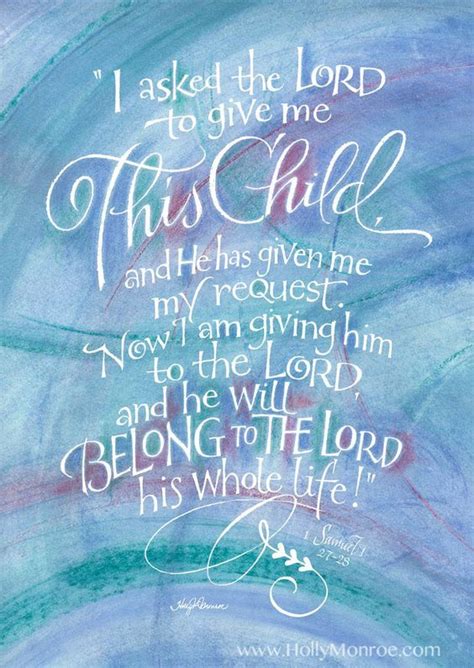 "I asked the LORD
to give me
This Child,
and He has given me
my request.
Now I am giving him
to the LORD,
and he will
BELONG TO THE LORD
his whole life!"
1 Samuel 1
27-28
www.HollyMonroe.com